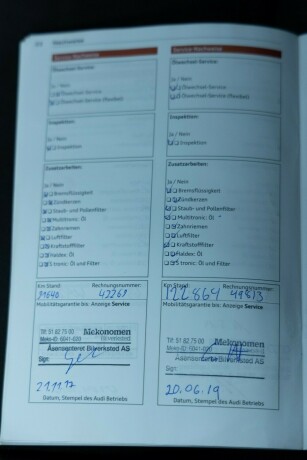 Service-Nachweise
Ölwechsel Service:
Ja / Nein
Ölwechsel Service
Ölwechsel Service (flexibel)
Inspektion:
Ja / Nein
Inspektion
Zusatzarbeiten:
Ja / Nein
Bremsflüssigkeit
Zündkerzen
Staub- und Pollenfilter
Multitronic: Öl
Zahnriemen
Luftfilter
Kraftstofffilter
Haldex: Öl
S tronic: Öl und Filter
Km Stand: Rechnungsnummer:
42269
Mobilitätsgarantie bis: Anzeige Service
Tlf: 51 82 75 00 Mekonomen
Meko-ID: 6041-620 Bilverksted
Åsensenteret Bilverksted AS
Sign:
21.11.17
Datum, Stempel des Audi Betriebs
Service-Nachweise
Ölwechsel Service:
Ja / Nein
Ölwechsel Service
Ölwechsel Service (flexibel)
Inspektion:
Ja / Nein
Inspektion
Zusatzarbeiten:
Ja / Nein
Bremsflüssigkeit
Zündkerzen
Staub- und Pollenfilter
Multitronic: Öl
Zahnriemen
Luftfilter
Kraftstofffilter
Haldex: Öl
S tronic: Öl und Filter
Km Stand: Rechnungsnummer:
122864 49813
Mobilitätsgarantie bis: Anzeige Service
Tlf: 51 82 75 00 Mekonomen
Meko-ID: 6041-620 Bilverksted
Åsensenteret Bilverksted AS
Sign:
20.06.19
Datum, Stempel des Audi Betriebs